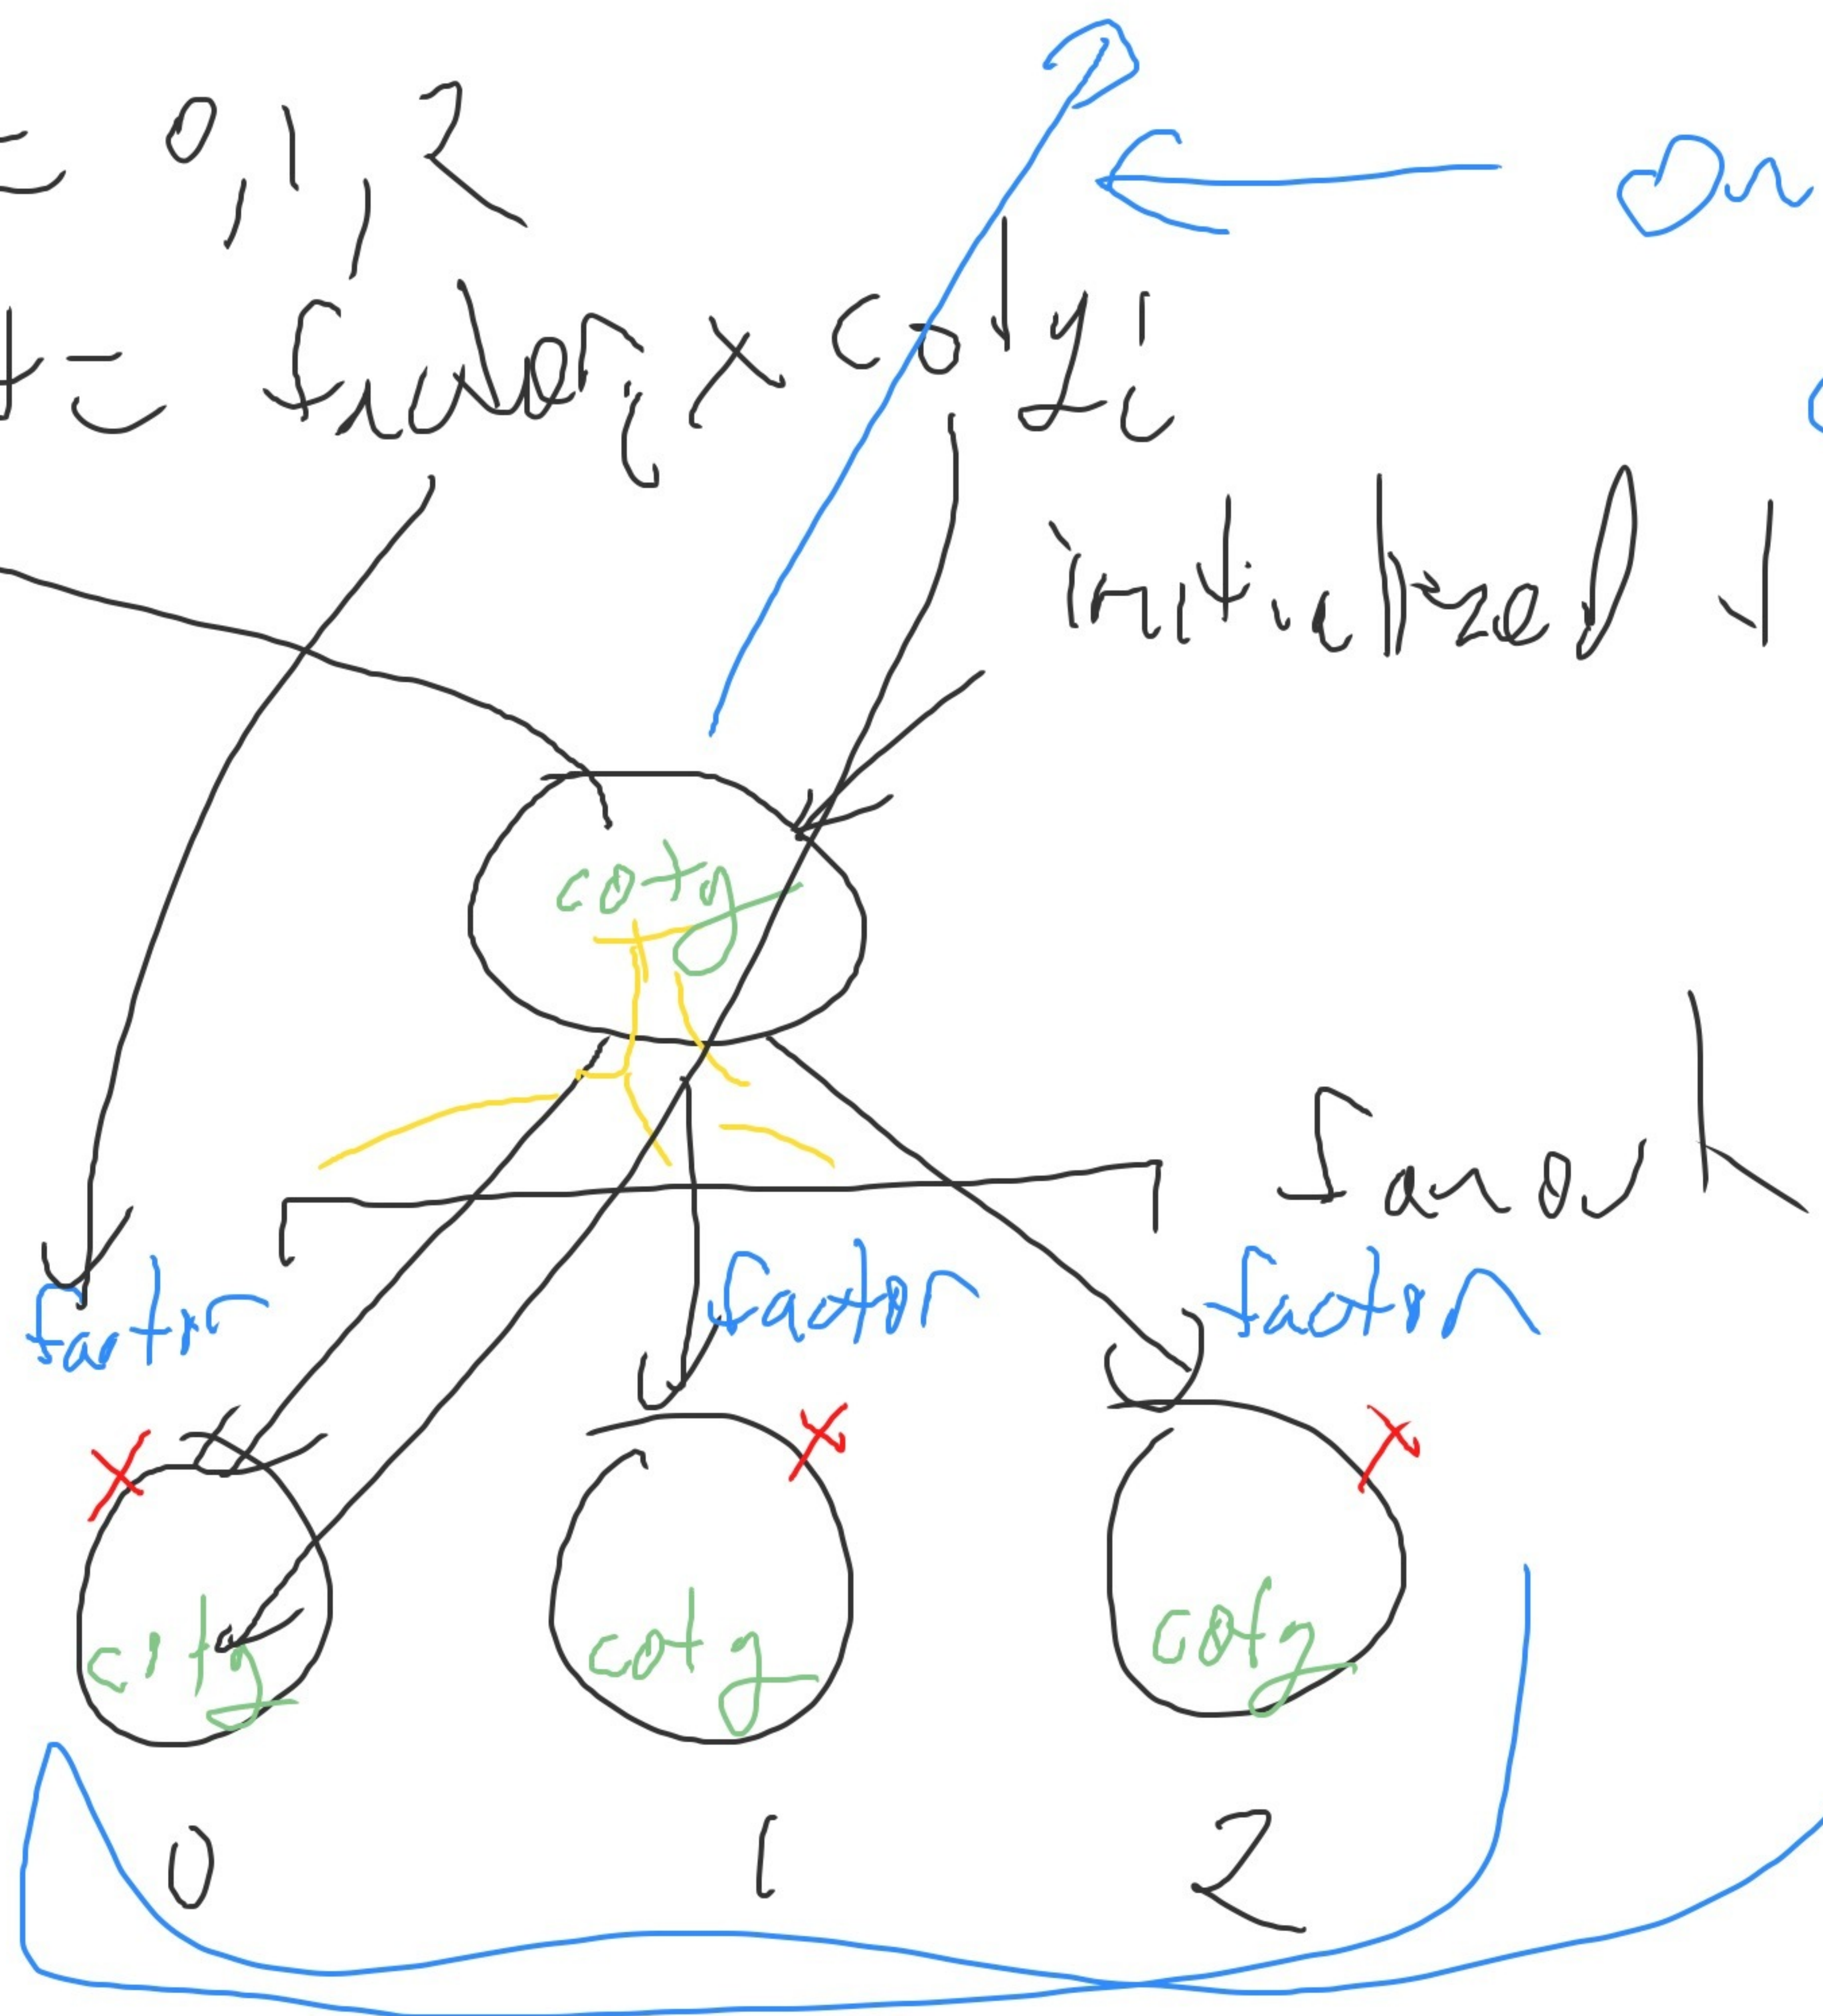 = 0, 1, 2
On
t = factor i x cotg i
initialized 1
cotg
Fanout
factor factor factor
cotg cotg cotg
0 1 2